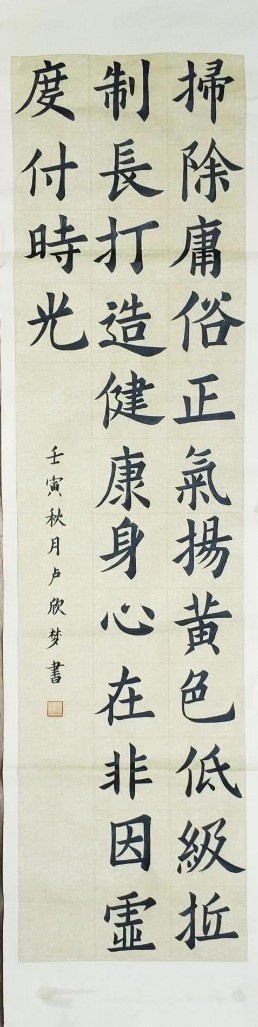 掃除庸俗正氣揚黄色低級抵
制長打造健康身心在非因虛
度付時光
壬寅秋月卢欣梦書